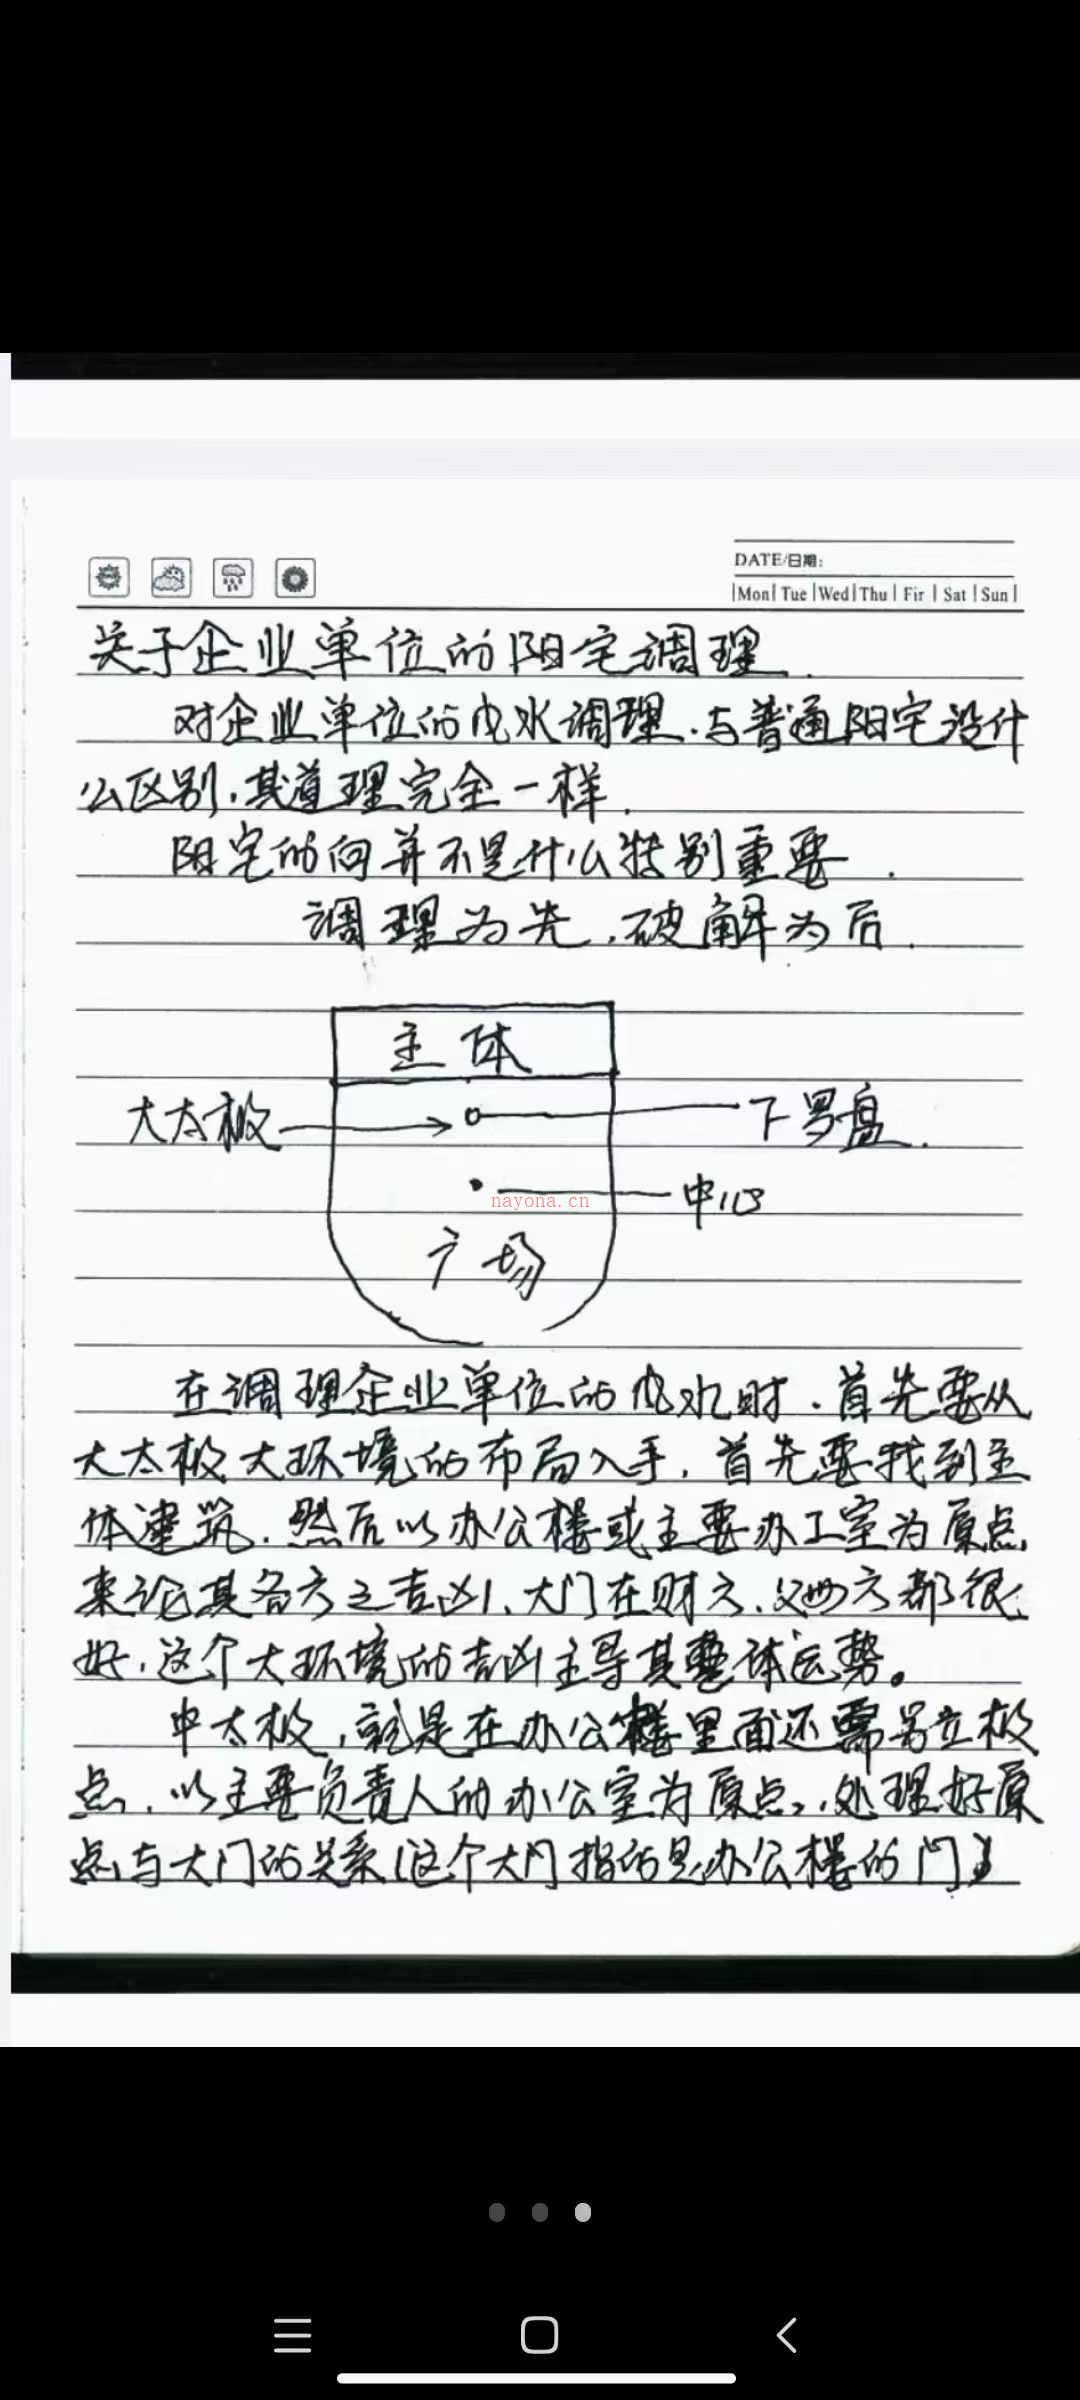 DATE/日期:
Mon Tue Wed Thu Fir Sat Sun
关于企业单位的阳宅调理.
对企业单位的风水调理.与普通阳宅设计
公区别,其道理完全一样.
阳宅的向并不是什么特别重要.
调理为先,破解为后.
主体
大太极
下罗盘.
中心
nayona.cn
广场
在调理企业单位的风水时.首先要从
大太极大环境的布局入手,首先要找到主
体建筑.然后以办公楼或主要办工室为原点,
来论其各方之吉凶,大门在财方、文昌方都很
好,这个大环境的吉凶主导其整体运势。
中太极,就是在办公楼里面还需另立极
点,以主要负责人的办公室为原点,处理好原
点与大门的关系(这个大门指的是办公楼的门)